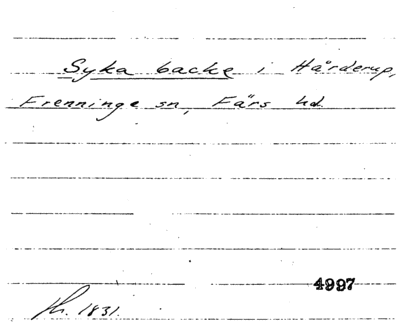 Syka backe i Hårderup,
Frenninge sn, Färs hd.
4997
fh. 1831.